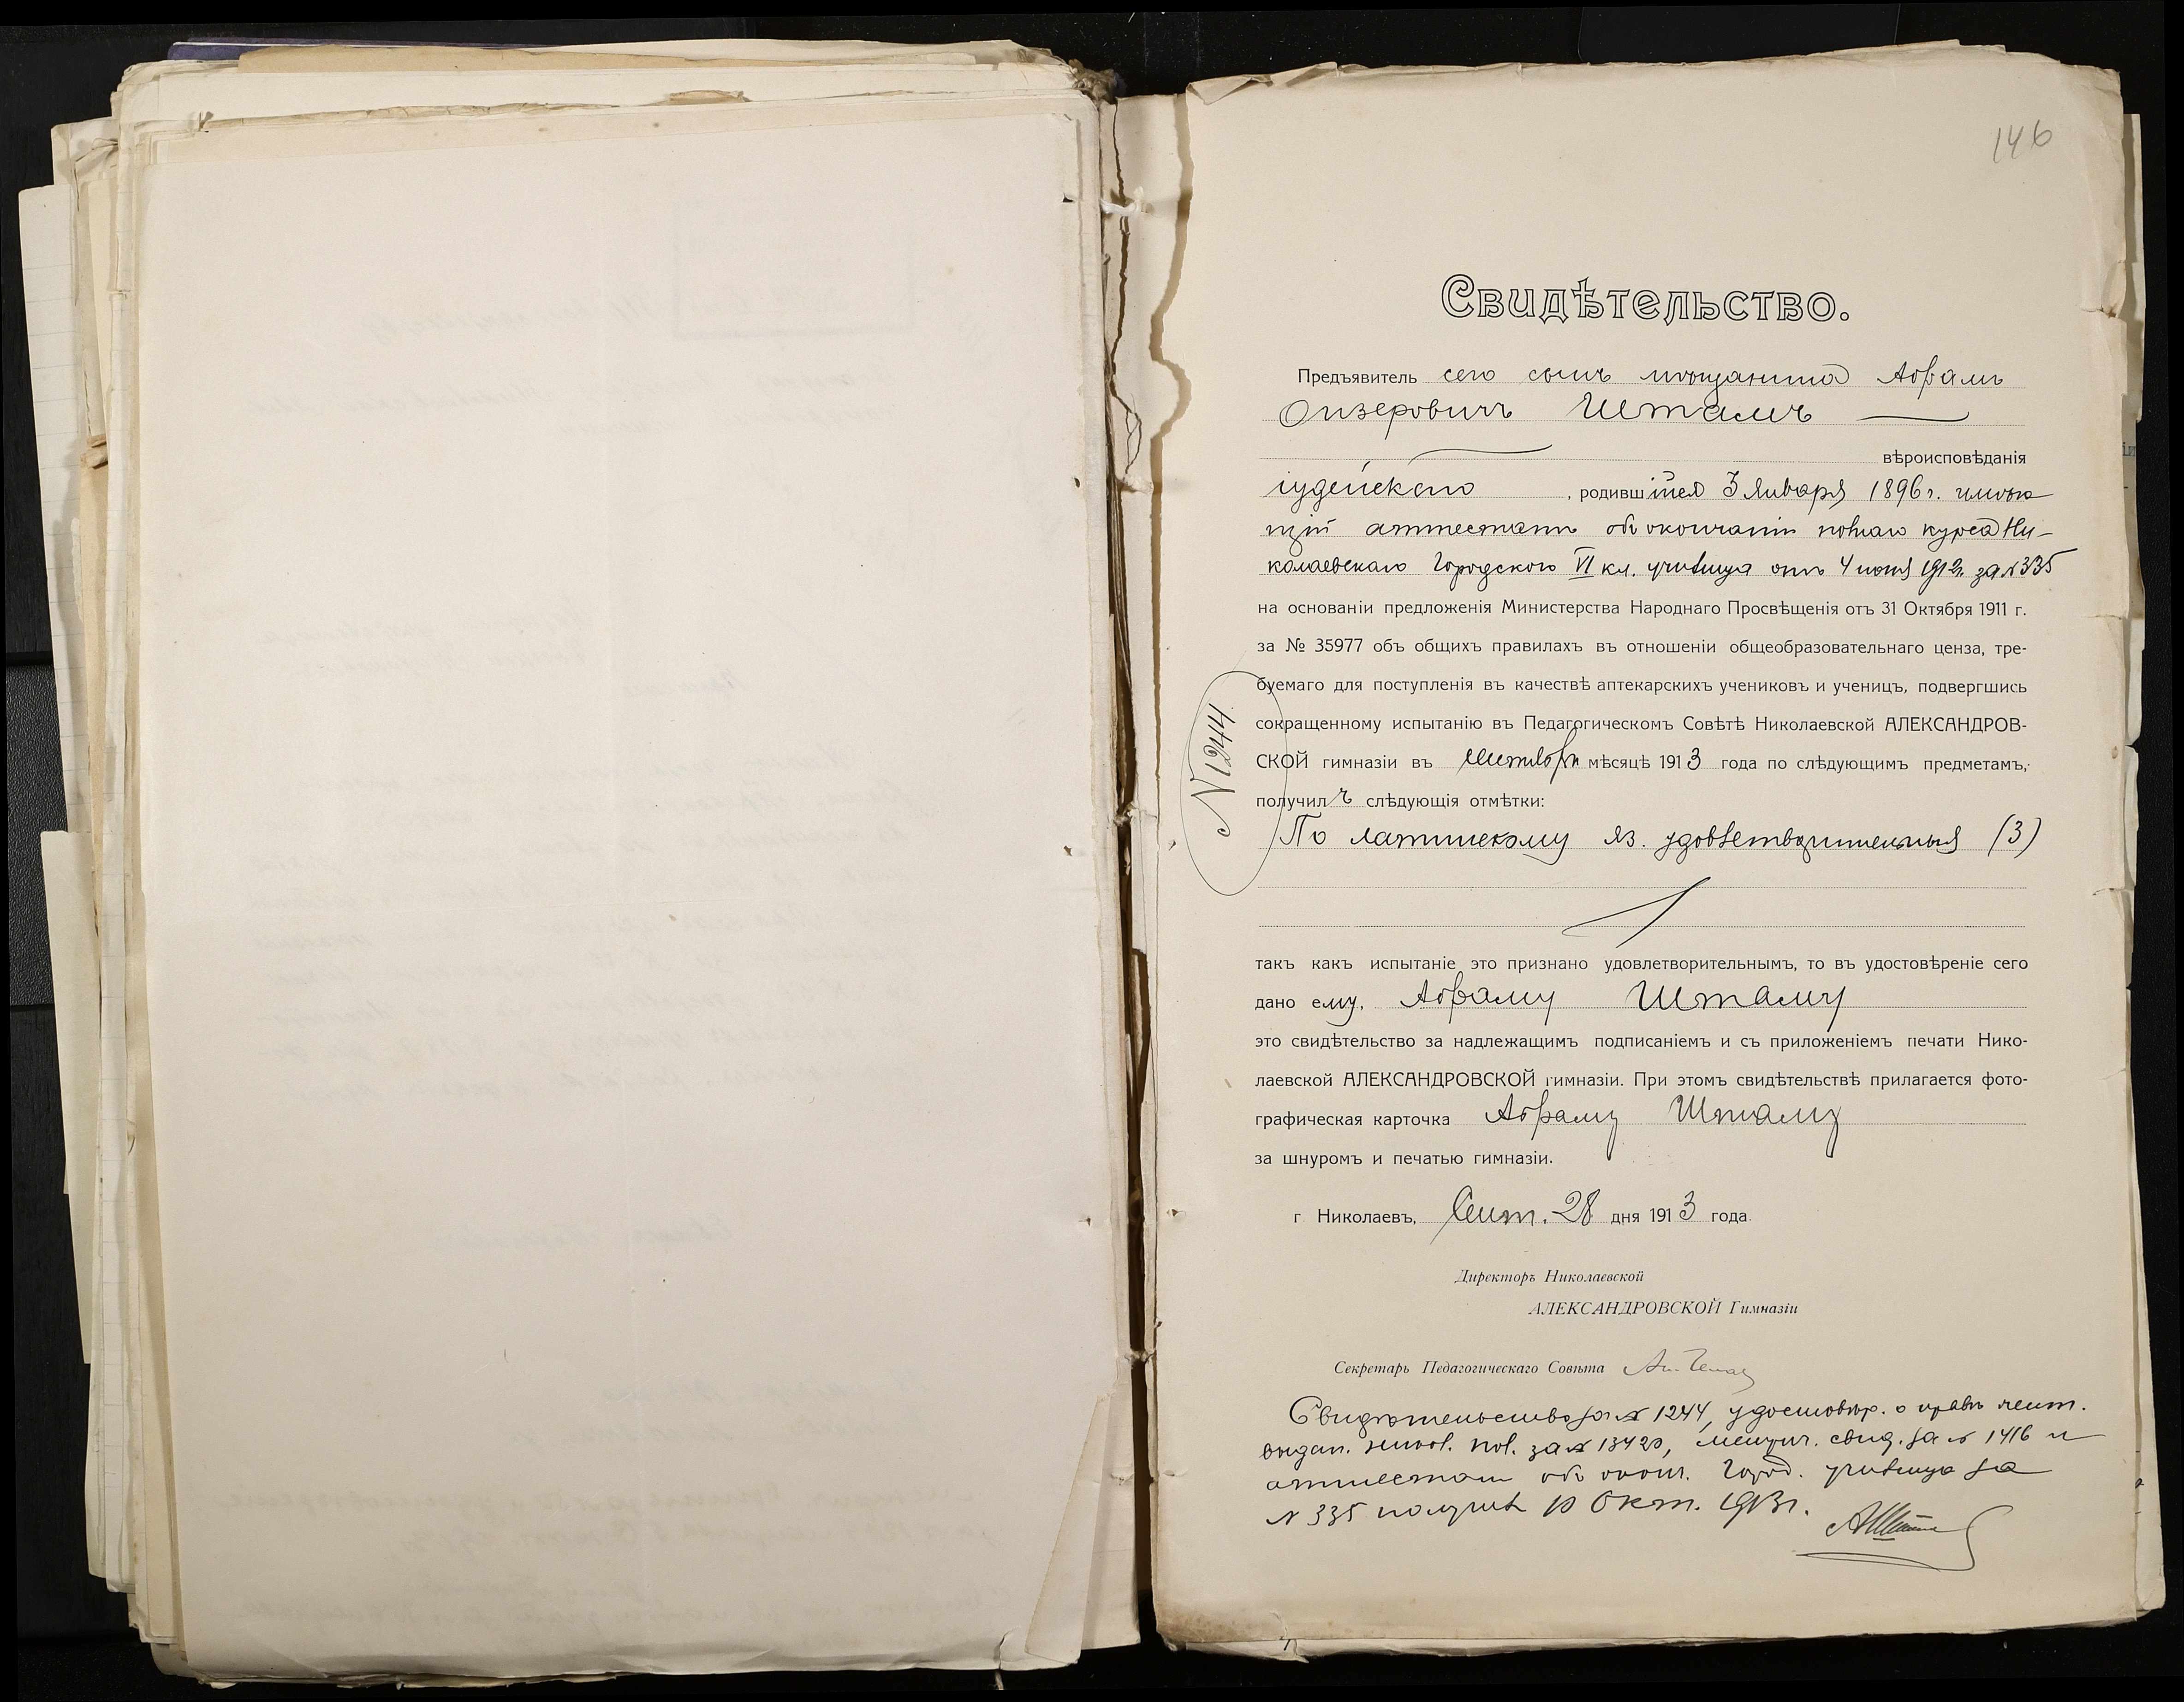 146
Свидѣтельство.
Предъявитель сего сынъ мѣщанина Абрамъ
Ойзеровичъ Штамъ
вѣроисповѣданія
іудейскаго, родившійся 3 Января 1896 г. имѣю
щій аттестатъ объ окончаніи полнаго курса Ни-
колаевскаго Городского VI кл. училища отъ 4 іюня 1912 г. за № 335
на основаніи предложенія Министерства Народнаго Просвѣщенія отъ 31 Октября 1911 г.
за № 35977 объ общихъ правилахъ въ отношеніи общеобразовательнаго ценза, тре-
буемаго для поступленія въ качествѣ аптекарскихъ учениковъ и ученицъ, подвергшись
сокращенному испытанію въ Педагогическомъ Совѣтѣ Николаевской АЛЕКСАНДРОВ-
СКОЙ гимназіи въ Сентябрѣ мѣсяцѣ 1913 года по слѣдующимъ предметамъ,
получилъ слѣдующія отмѣтки:
№ 1244
По латинскому яз. удовлетворительныя (3)
такъ какъ испытаніе это признано удовлетворительнымъ, то въ удостовѣреніе сего
дано ему, Абраму Штаму
это свидѣтельство за надлежащимъ подписаніемъ и съ приложеніемъ печати Нико-
лаевской АЛЕКСАНДРОВСКОЙ гимназіи. При этомъ свидѣтельствѣ прилагается фото-
графическая карточка Абраму Штаму
за шнуромъ и печатью гимназіи.
г. Николаевъ, Сент. 28 дня 1913 года.
Директоръ Николаевской
АЛЕКСАНДРОВСКОЙ Гимназіи
Секретарь Педагогическаго Совѣта
Свидѣтельство за № 1244, удостовѣр. о правѣ жит.
выдан. никол. пол. за № 13420, метрич. свид. за № 1416 и
аттестатъ объ оконч. Город. училища за
№ 335 получилъ 10 Окт. 1913 г.
АШтамъ